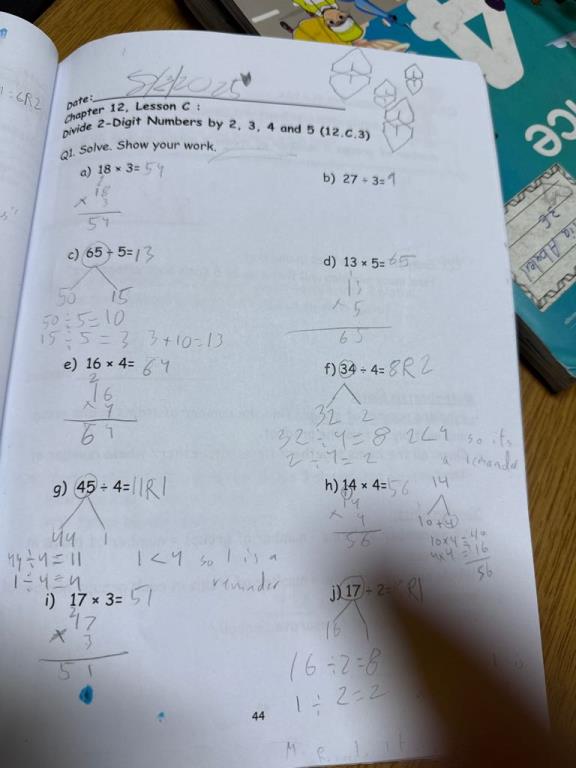 5/2/2025
Date:
Chapter 12, Lesson C :
Divide 2-Digit Numbers by 2, 3, 4 and 5 (12.C.3)
Q1. Solve. Show your work.
a) 18 × 3= 54
18
× 3
54
b) 27 ÷ 3= 9
c) 65 ÷ 5= 13
50 15
50 ÷ 5 = 10
15 ÷ 5 = 3 3+10=13
d) 13 × 5= 65
1
13
× 5
65
e) 16 × 4= 64
2
16
× 4
64
f) 34 ÷ 4= 8R2
32 2
32 ÷ 4 = 8 2<4 so its
2 ÷ 4 = 2 a remander
g) 45 ÷ 4= 11R1
44 1
44 ÷ 4 = 11 1<4 so 1 is a
1 ÷ 4 = 4 reminder
h) 14 × 4= 56
14
× 4
56
14
10+4
10×4=40
4×4=16
56
i) 17 × 3= 51
17
× 3
51
j) 17 ÷ 2= R1
16 1
16 ÷ 2 = 8
1 ÷ 2 = 2
44
6R2
4